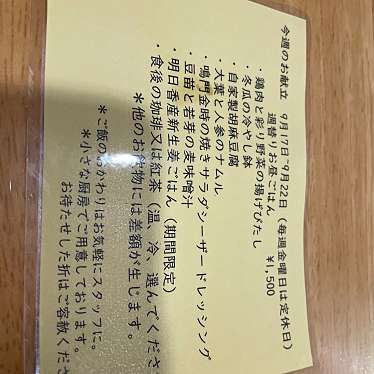 今週のお献立 9月17日~9月22日(毎週金曜日は定休日)
週替りお昼ごはん ¥1,500
・鶏肉と彩り野菜の揚げびたし
・冬瓜の冷やし鉢
・自家製胡麻豆腐
・大葉と人参のナムル
・鳴門金時の焼きサラダシーザードレッシング
・豆苗と若芽の麦味噌汁
・明日香産新生姜ごはん(期間限定)
・食後の珈琲又は紅茶(温、冷、選んでくださ
*他のお飲物には差額が生じます。
*ご飯のおかわりはお気軽にスタッフに。
*小さな厨房でご用意しております。
お待たせした折はご容赦くださ